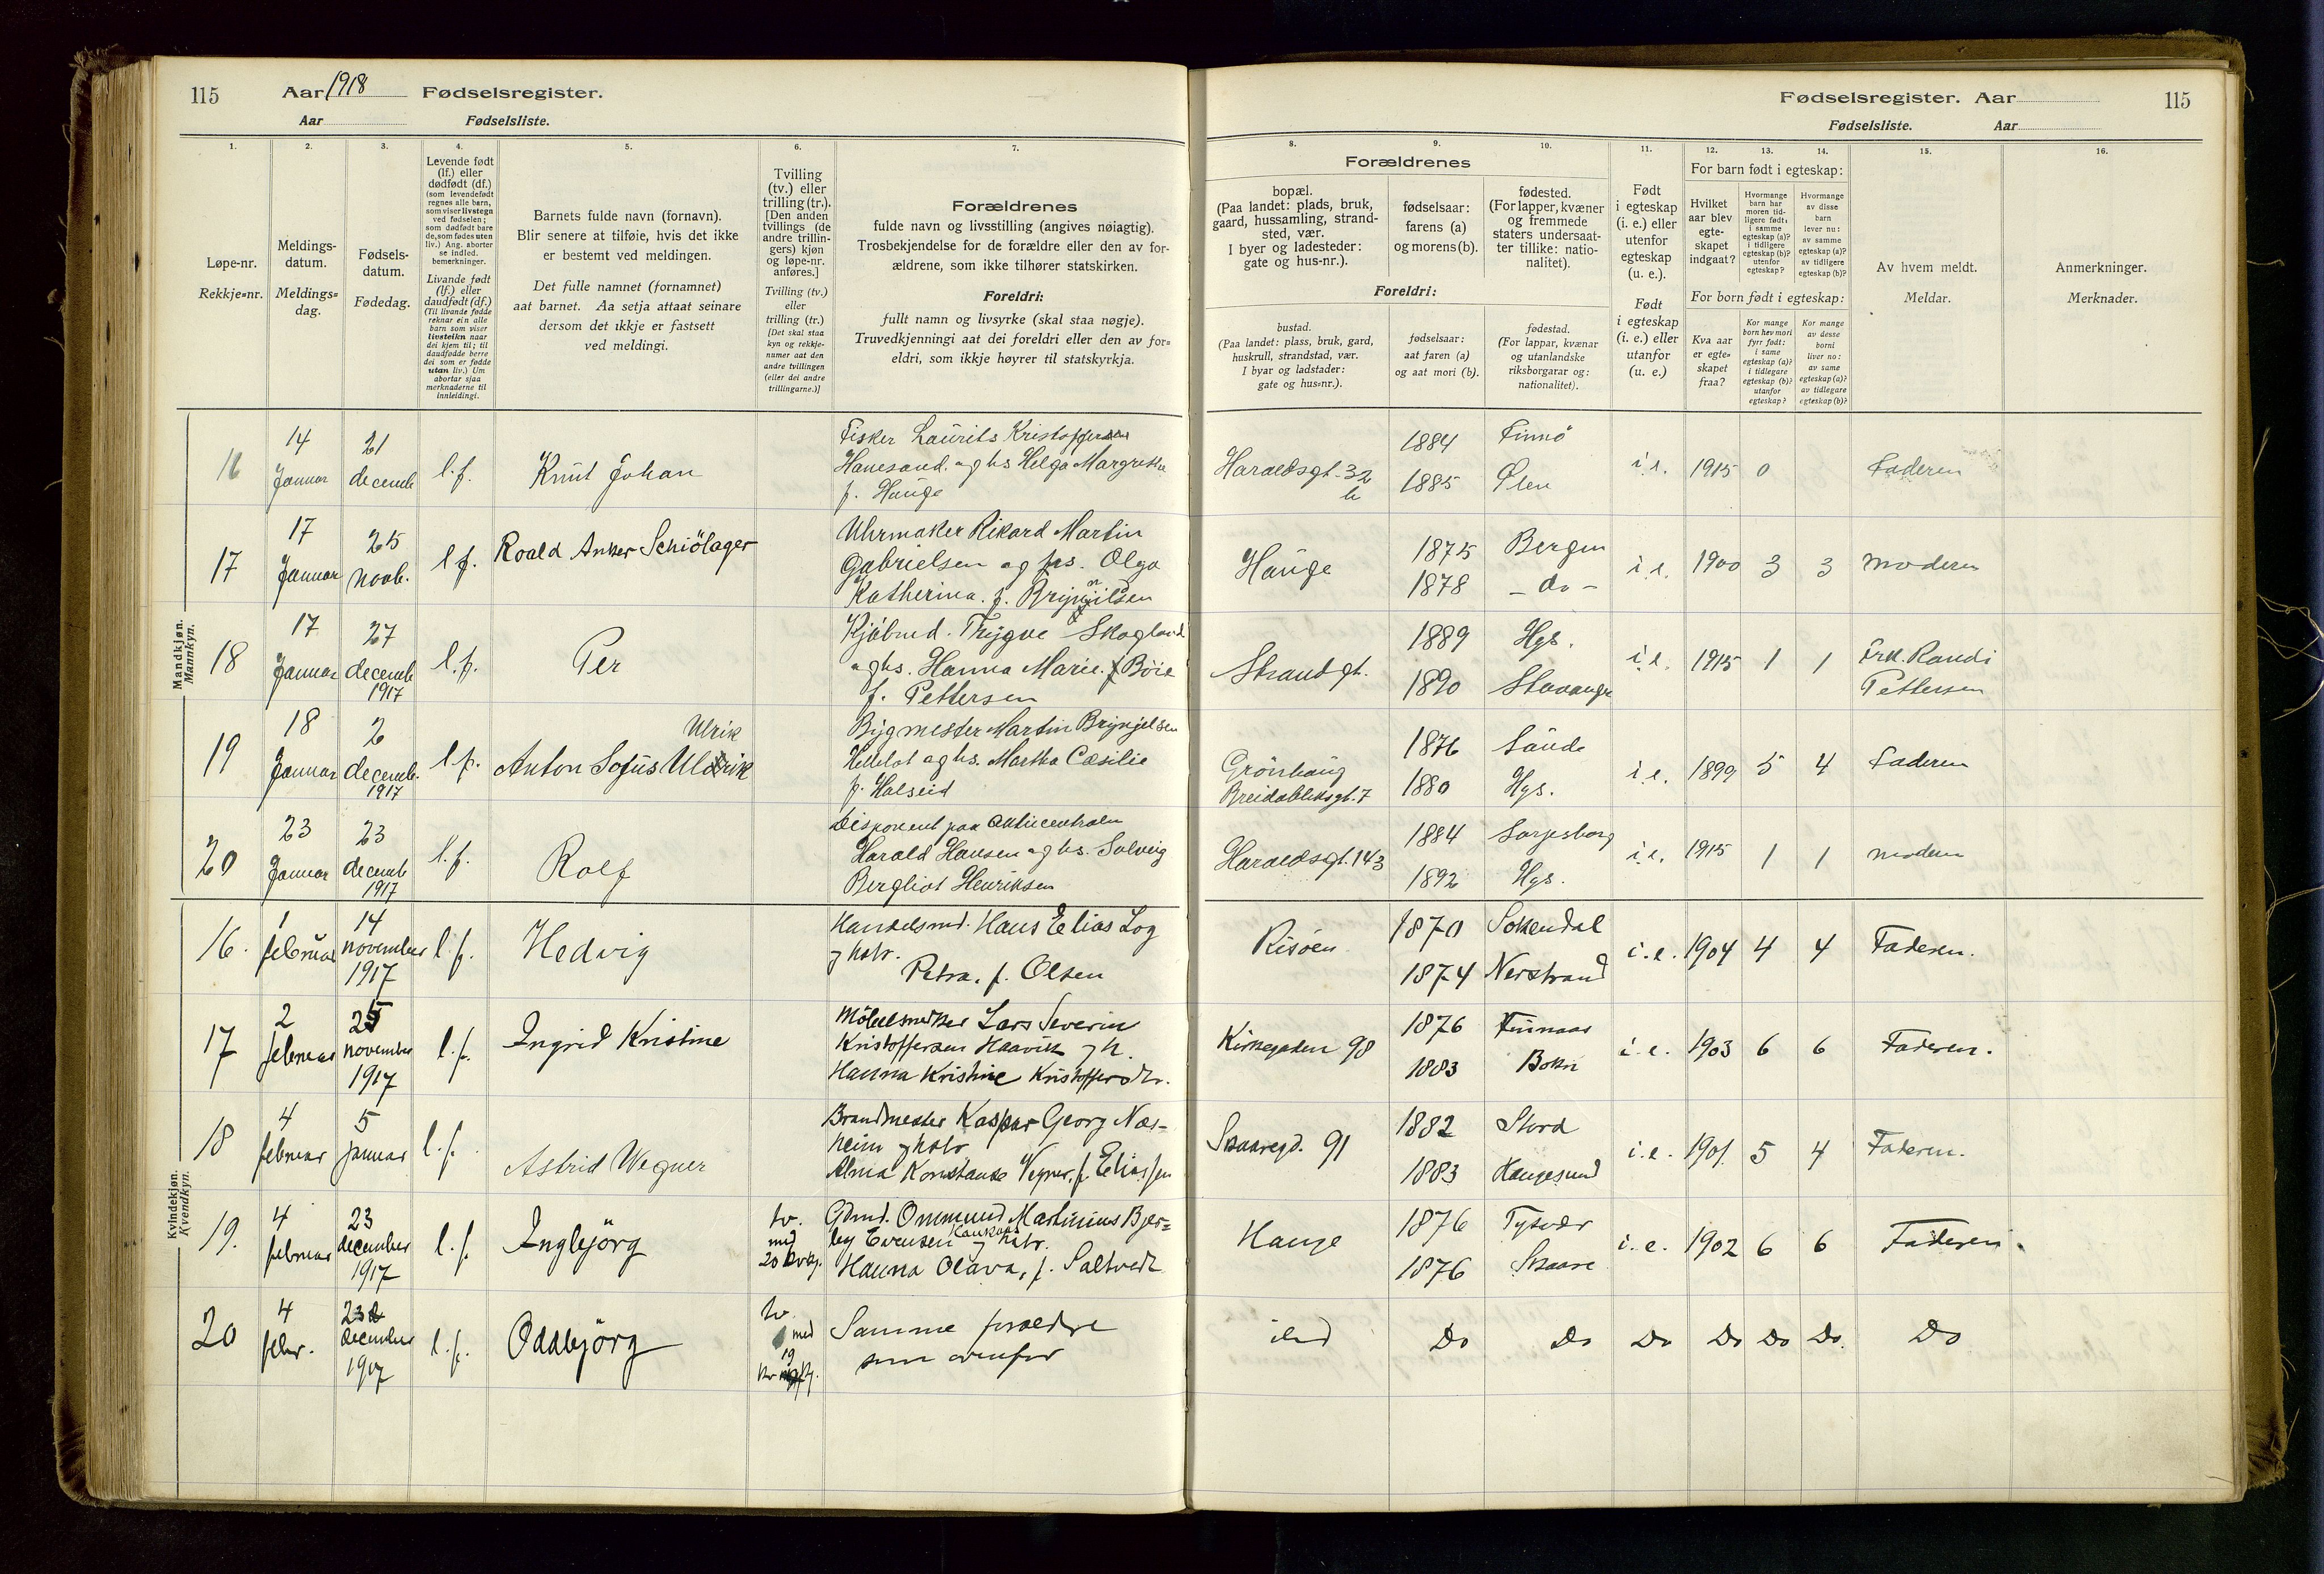 115 Aar 1918 Fødselsregister.
Aar Fødselsliste.
Fødselsregister. Aar 115
Fødselsliste. Aar
1. 2. 3. 4. 5. 6. 7. 8. 9. 10. 11. 12. 13. 14. 15. 16.
Løpe-nr.
Rekkje-nr.
Meldings-
datum.
Meldings-
dag.
Fødsels-
datum.
Fødedag.
Levende født
(lf.) eller
dødfødt (df.)
(som levendefødt
regnes alle barn,
som viser livstegn
ved fødselen;
som dødfødt bare
de, som fødes uten
liv.) Ang. aborter
se indled.
bemerkninger.
Livande født
(lf.) eller
daudfødt (df.)
(Til livande fødde
reknar ein alle
barn som viser
livsteikn naar
dei kjem til; til
daudfødde berre
dei som er fødde
utan liv.) Um
abortar sjaa
merknaderne til
innleidingi.
Barnets fulde navn (fornavn).
Blir senere at tilføie, hvis det ikke
er bestemt ved meldingen.
Det fulle namnet (fornamnet)
aat barnet. Aa setja attaat seinare
dersom det ikkje er fastsett
ved meldingi.
Tvilling
(tv.) eller
trilling (tr.).
[Den anden
tvillings (de
andre trillin-
gers) kjøn
og løpe-nr.
anføres.]
Tvilling (tv.)
eller
trilling (tr.)
[Det skal staa
kyn og rekkje-
numer aat den
andre tvillingen
(eller dei andre
trillingarne.)]
Forældrenes
fulde navn og livsstilling (angives nøiagtig).
Trosbekjendelse for de forældre eller den av for-
ældrene, som ikke tilhører statskirken.
Foreldri:
fullt namn og livsyrke (skal staa nøgje).
Truvedkjenningi aat dei foreldri eller den av for-
eldri, som ikkje høyrer til statskyrkja.
Forældrenes
bopæl.
(Paa landet: plads, bruk,
gaard, hussamling, strand-
sted, vær.
I byer og ladesteder:
gate og hus-nr.).
fødselsaar:
farens (a)
og morens (b).
fødested.
(For lapper, kvæner
og fremmede
staters undersaat-
ter tillike: natio-
nalitet).
Foreldri:
bustad.
(Paa landet: plass, bruk, gard,
huskrull, strandstad, vær.
I byar og ladstader:
gate og hus-nr.).
fødselsaar:
aat faren (a)
og aat mori (b).
fødestad.
(For lappar, kvænar
og utanlandske
riksborgarar og:
nationalitet).
Født
i egteskap
(i. e.) eller
utenfor
egteskap
(u. e.).
Født
i egteskap
(i. e.) eller
utanfor
(u. e.)
For barn født i egteskap:
Hvilket
aar blev
egte-
skapet
indgaat?
Hvormange
barn har
moren tid-
ligere født:
i samme
egteskap (a)?
i tidligere
egteskap (b)?
utenfor
egteskap?
Hvormange
av disse
barn
lever nu:
av samme
egteskap (a)?
av tidligere
egteskap (b)?
For born født i egteskap:
Kva aar
er egte-
skapet
fraa?
Kor mange
born hev mori
fyrr født:
i same
egteskap (a)?
i tidlegare
egteskap (b)?
utanfor
egteskap?
Kor mange
av desse
borni
liver no:
av same
egteskap (a)?
av tidlegare
egteskap (b)?
Av hvem meldt.
Meldar.
Anmerkninger.
Merknader.
Mandkjøn.
Mannkyn.
16 14 Januar 21 decemb l.f. Knut Johan
Fisker Laurits Kristoffersen
Hanesand. og hs Helga Margrethe
f. Hauge
Haraldsgt. 32 b 1884 1885 Finnö Ølen i.e. 1915 0 Faderen
17 17 Januar 25 novb. l.f. Roald Anker Schiölager
Uhrmaker Rikard Martin
Gabrielsen og hs. Olga
Katherina. f. Brynjilsen
Hauge 1875 1878 Bergen - do - i.e. 1900 3 3 moderen
18 17 Januar 27 decemb 1917 l.f. Per
Kjöbmd. Trygve Skogland
og hs. Hanna Marie. Böie
f. Pettersen
Strandgt. 1889 1890 Hgs. Stavanger i.e. 1915 1 1 Frk. Randi Pettersen
19 18 Januar 2 decemb. 1917 l.f. Anton Sofus Ulrik Ulrik
Bygmester Martin Brynjelsen
og hs. Martha Cæsilie
f. Halseid
Grönhaug
Breidabliksgt. 7 1876 1880 Saude Hgs. i.e. 1899 5 4 Faderen
20 23 Januar 23 decemb 1917 l.f. Rolf
Disponent paa
Harald Hansen og hs. Solveig
Bergliot Henriksen
Haraldsgt. 143 1884 1892 Sarpsborg Hgs. i.e. 1915 1 1 modern
Kvindekjøn.
Kvendkyn.
16. 1 februar 14 november 1917 l.f. Hedvig
Handelsmd. Hans Elias Log
og hstr.
Petra, f. Olsen
Risöen 1870 1874 Sokendal Nerstrand i.e. 1904 4 4 Faderen.
17 2 februar 25 november 1917 l.f. Ingrid Kristine
Möbelsnedker Lars Severin
Kristoffersen Haavik og h.
Hanna Kristine Kristoffersdtr.
Kirkegaden 98 1876 1883 Finnaas Bokn i.e. 1903 6 6 Faderen.
18 4 februar 5 januar l.f. Astrid Wegner
Brandmester Kaspar Georg Næs-
heim og hstr
Alma Konstanse Vegner, f. Eliassen
Skaaregd. 91 1882 1883 Stord Haugesund i.e. 1901. 5 4 Faderen.
19. 4 februar 23 december 1917 l.f. Ingbjörg
tv. med 20 kvkj.
Gdmd. Ommund Martinius Bjer-
ley Evensen og hstr.
Hanna Olava, f. Saltvedt
Hauge 1876 1876 Tysvær Skaare i.e. 1902 6 6 Faderen.
20 4 febr. 23 december 1917 l.f. Oddbjörg
tv. med 19
Samme foreldre
som ovenfor
Do Do Do Do Do Do. Do